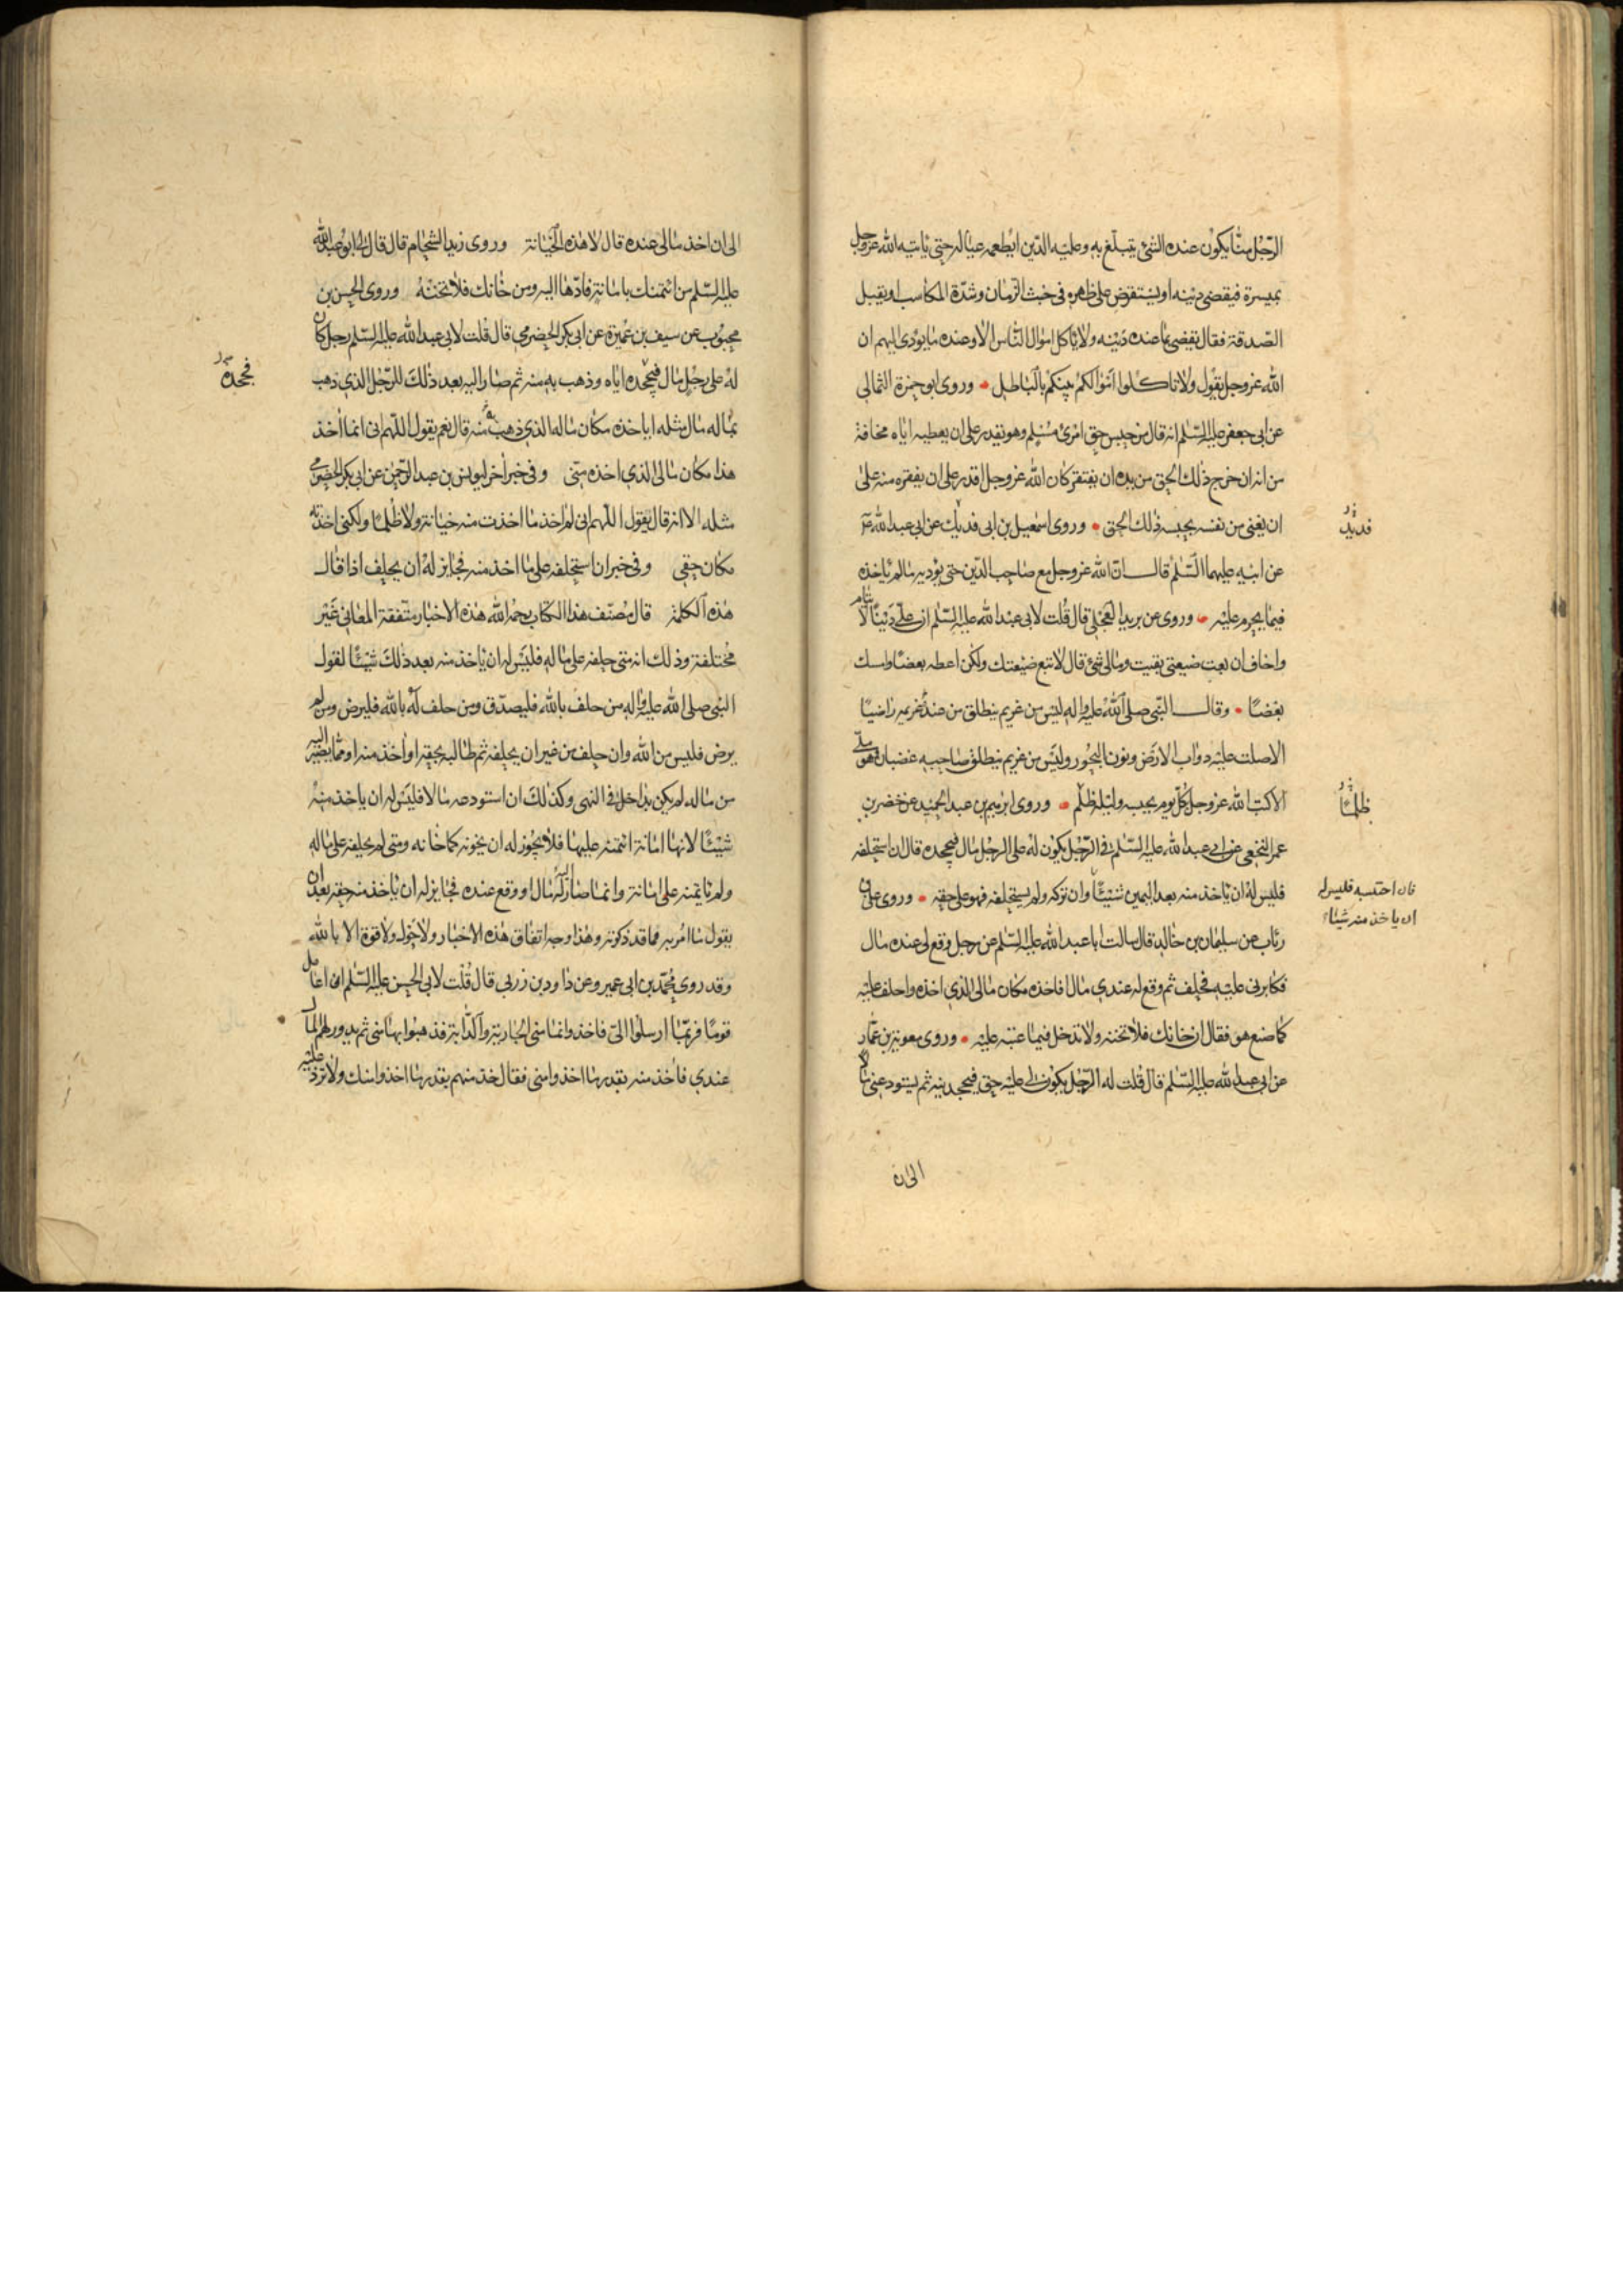 الرّجل منّا يكون عنده الشئ يتبلّغ به وعليه الدّين ايطعمه عياله حتى ياتيه الله عزوجل
بميسرة فيقضى دينه او يستقرض على ظهره فى خبث الزمان وشدّة المكاسب او يقبل
الصّدقة فقال يقضى بما عنده دينه ولا ياكل اموال النّاس الا وعنده ما يؤدى اليهم ان
الله عزوجل يقول ولا تاكلوا اموالكم بينكم بالباطل وروى ابو حمزة الثمالى
عن ابى جعفر عليه السّلم انه قال من حبس حق امرئ مسلم وهو يقدر على ان يعطيه اياه مخافة
من انه ان خرج ذلك الحق من يده ان يفتقر كان الله عزوجل اقدر على ان يفقره منه على
ان يغنى من نفسه بحبسه ذلك الحق وروى اسمعيل بن ابى فديك عن ابى عبد الله ع
فديك
عن ابيه عليهما السّلم قال انّ الله عزوجل مع صاحب الدّين حتى يؤديه ما لم ياخذه
فيما يحرم عليه وروى عن بريد العجلى قال قلت لابى عبد الله عليه السّلم ان علىّ دينًا لايتام
واخاف ان بعت ضيعتى بقيت ومالى شئ قال لا تبع ضيعتك ولكن اعطه بعضًا وامسك
بعضًا وقال النّبى صلى الله عليه واله ليس من غريم ينطلق من عند غريمه راضيًا
الا صلت عليه دواب الارض ونون البحور وليس من غريم ينطلق صاحبه غضبان وهو ملّى
الا كتب الله عزوجل بكلّ يوم يحبسه وليلة ظلم وروى ابرهيم بن عبد الحميد عن خضر بن
ظلمًا
عمر النخعى عن ابى عبد الله عليه السّلم فى الرّجل يكون له على الرجل مال فيجحده قال ان استحلفه
فليس له ان ياخذ منه بعد اليمين شيئًا وان تركه ولم يستحلفه فهو على حقه وروى على بن
فان احتسبه فليس له
ان ياخذ منه شيئا
رئاب عن سليمان بن خالد قال سالت ابا عبد الله عليه السّلم عن رجل وقع لى عنده مال
فكابرنى عليه فحلف ثم وقع له عندى مال افاخذه مكان مالى الذى اخذه واحلف عليه
كما صنع هو فقال ان خانك فلا تخنه ولا تدخل فيما عبته عليه وروى معوية بن عمّار
عن ابى عبد الله عليه السّلم قال قلت له الرّجل يكون لى عليه حق فيجحدنيه ثم يستودعنى مالا
الى ان
الى ان اخذ مالى عنده قال لا هذه الخيانة وروى زيد الشحّام قال قال لى ابو عبد الله
عليه السّلم من ائتمنك بامانة فادّها اليه ومن خانك فلا تخنه وروى الحسن بن
محبوب عن سيف بن عميرة عن ابى بكر الحضرمى قال قلت لابى عبد الله عليه السّلم رجل كان
له على رجل مال فيجحده اياه وذهب به منه ثم صار اليه بعد ذلك للرّجل الذى ذهب
فجحده
بماله مال مثله اياخذه مكان ماله الذى ذهب به منه قال نعم يقول اللّهم انى انما اخذ
هذا مكان مالى الذى اخذه منّى وفى خبر اخر ليونس بن عبد الرّحمن عن ابى بكر الحضرمى
مثله الا انه قال يقول اللّهم انى لم اخذ ما اخذت منه خيانة ولا ظلمًا ولكنى اخذته
مكان حقى وفى خبر ان استحلفه على ما اخذ منه فجايز له ان يحلف اذا قال
هذه الكلمة قال مصنّف هذا الكتاب رحمه الله هذه الاخبار متّفقة المعانى غير
مختلفة وذلك انه متى حلفه على ماله فليس له ان ياخذ منه بعد ذلك شيئًا لقول
النبى صلى الله عليه واله من حلف بالله فليصدّق ومن حلف له بالله فليرض ومن لم
يرض فليس من الله وان حلف من غير ان يحلفه ثم طالبه بحقه او اخذ منه او مما يصير اليه
من ماله لم يكن بداخل فى النهى وكذلك ان استودعه مالا فليس له ان ياخذ منه
شيئًا لانها امانة ائتمنه عليها فلا يجوز له ان يخونه كما خانه ومتى لم يحلفه على ماله
ولم ياتمنه على امانة وانما صار اليه له مال او وقع عنده فجايز له ان ياخذ منه حقه بعد ان
يقول ما امر به مما قد ذكرته وهذا وجه اتفاق هذه الاخبار ولا حول ولا قوة الا بالله
وقد روى محمّد بن ابى عمير وعن داود بن زربى قال قلت لابى الحسن عليه السّلم انى اعامل
قومًا فربّما ارسلوا الىّ فاخذوا منى الجارية والدّابة فذهبوا بها منى ثم يدور لهم المال
عندى فاخذ منه بقدر ما اخذوا منى فقال خذ منهم بقدر ما اخذوا منك ولا تزد عليه